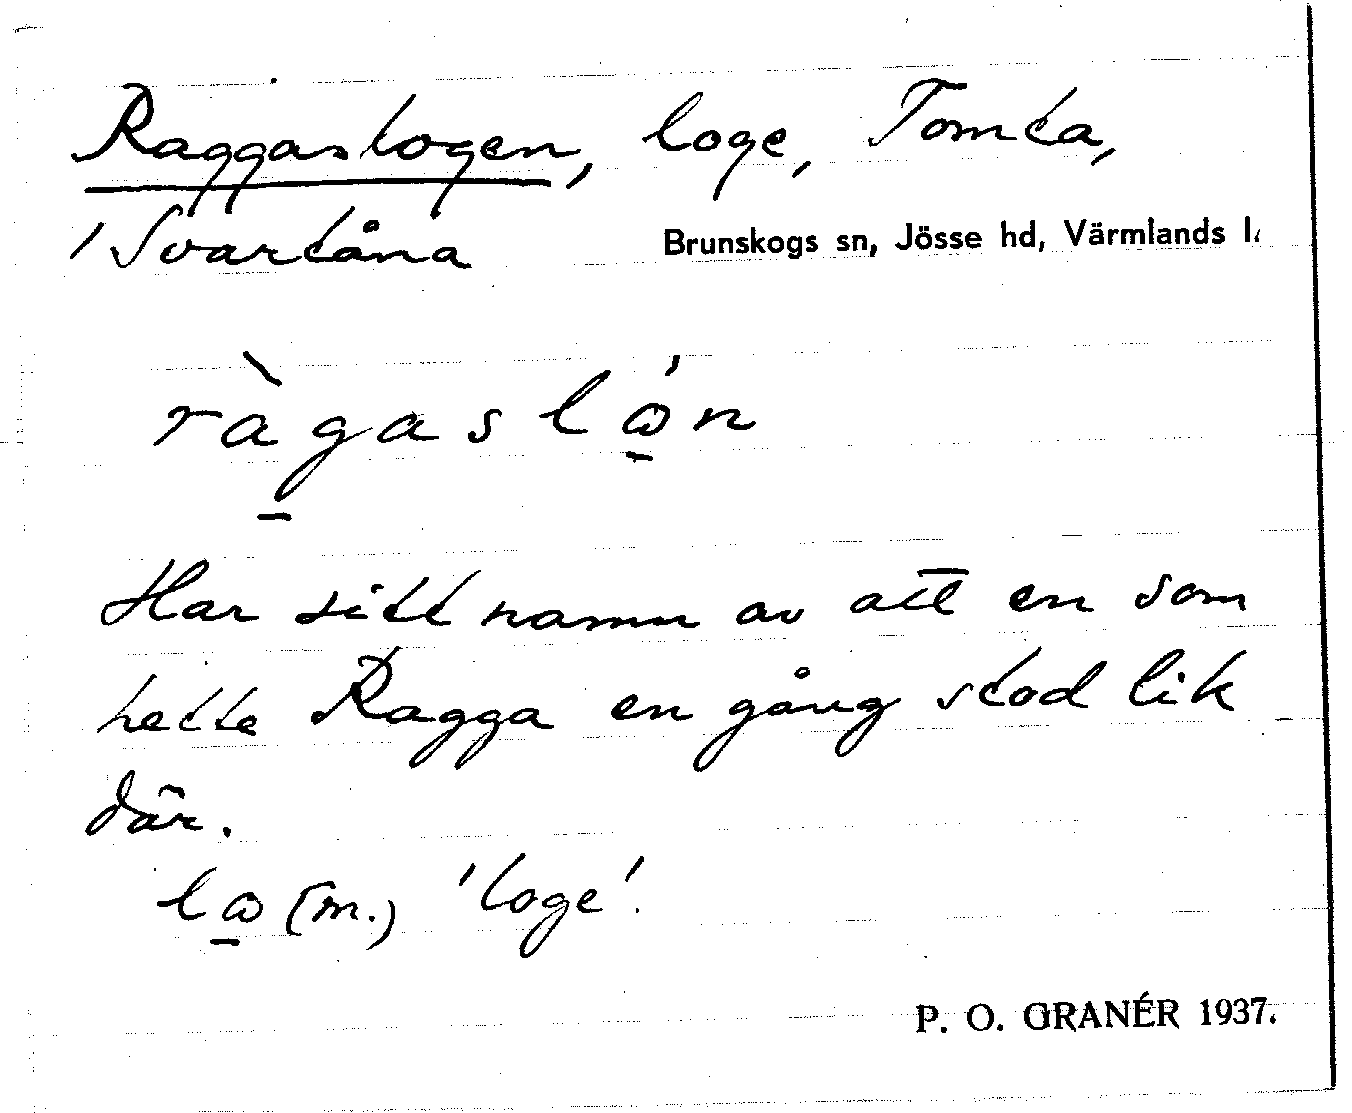 Raggaslogen, loge, Tomta,
/ Svartåna
Brunskogs sn, Jösse hd, Värmlands l.
ràgaslǫ́n
Har sitt namn av att en som
hette Ragga en gång stod lik
där.
lω̱ (m.) 'loge'.
P. O. GRANÉR 1937.